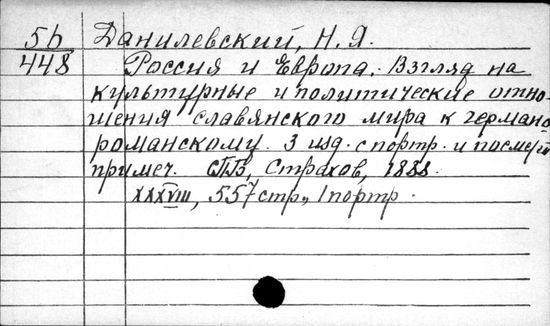 5б Данилевский, Н. Я.
448 Россия и Европа. Взгляд на
культурные и политические отно-
шения славянского мира к германо-
романскому. 3 изд. с портр. и посмерт
примеч. СПБ, Страхов, 1888.
XXXVIII, 557 стр., 1 портр.